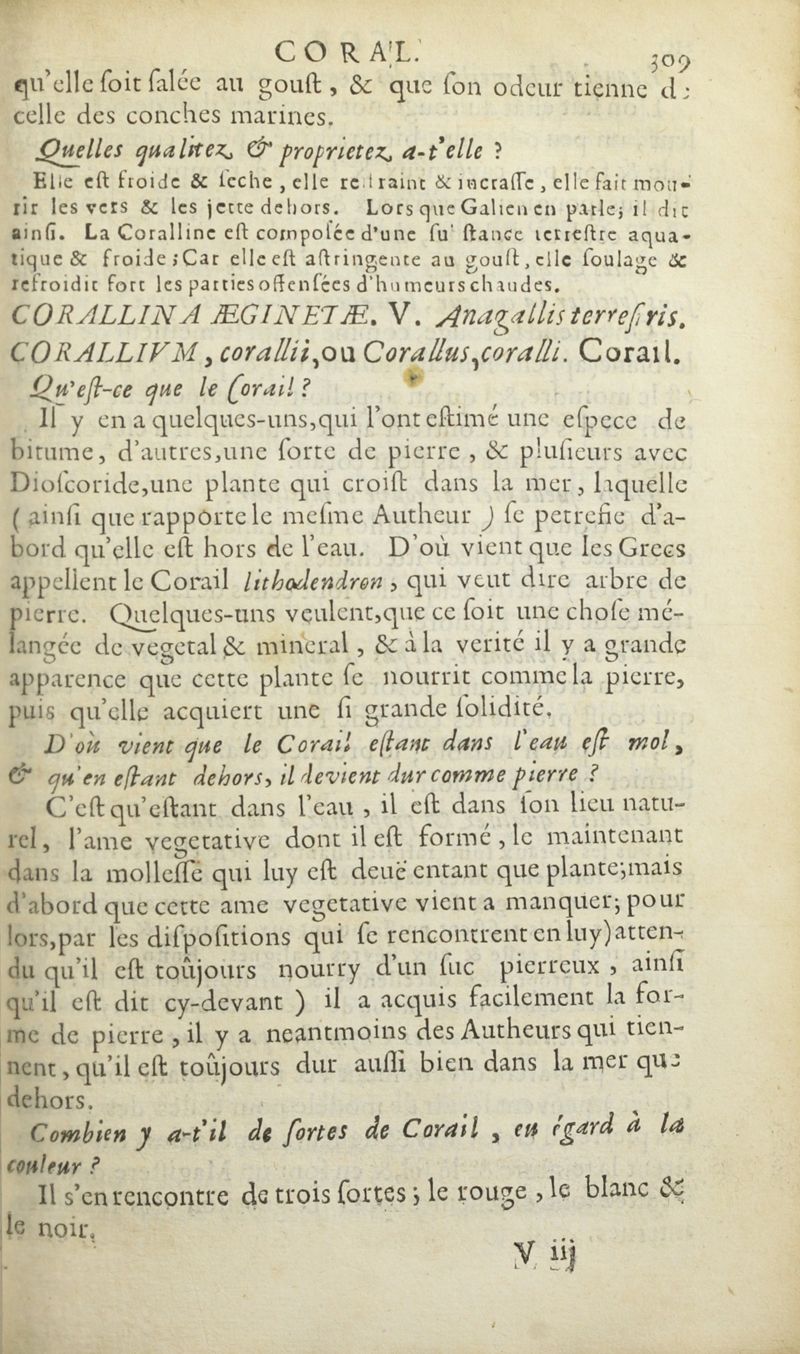 CORAIL.
309
qu'elle ſoit ſalée au gouſt, & que ſon odeur tienne de
celle des conches marines.
Quelles qualitez & proprietez a-t'elle ?
Elle eſt froide & ſeche, elle reſtraint & incraſſe, elle fait mou-
rir les vers & les jette dehors. Lors que Galien en parle; il dit
ainſi. La Coralline eſt compoſée d'une ſubſtance terreſtre aqua-
tique & froide; Car elle eſt aſtringente au gouſt, elle ſoulage &
refroidit fort les parties offenſées d'humeurs chaudes.
CORALLINA ÆGINETÆ. V. Anagallis terreſtris.
CORALLIVM, corallii, ou Corallus, coralli. Corail.
Qu'eſt-ce que le Corail ?
Il y en a quelques-uns, qui l'ont eſtimé une eſpece de
bitume, d'autres, une ſorte de pierre, & pluſieurs avec
Dioſcoride, une plante qui croiſt dans la mer, laquelle
( ainſi que rapporte le meſme Autheur ) ſe petrefie d'a-
bord qu'elle eſt hors de l'eau. D'où vient que les Grecs
appellent le Corail lithodendron, qui veut dire arbre de
pierre. Quelques-uns veulent, que ce ſoit une choſe mé-
langée de vegetal & mineral, & à la verité il y a grande
apparence que cette plante ſe nourrit comme la pierre,
puis qu'elle acquiert une ſi grande ſolidité.
D'où vient que le Corail eſtant dans l'eau eſt mol,
& qu'en eſtant dehors, il devient dur comme pierre ?
C'eſt qu'eſtant dans l'eau, il eſt dans ſon lieu natu-
rel, l'ame vegetative dont il eſt formé, le maintenant
dans la molleſſe qui luy eſt deuë entant que plante; mais
d'abord que cette ame vegetative vient a manquer; pour
lors, par les diſpoſitions qui ſe rencontrent en luy) atten-
du qu'il eſt toûjours nourry d'un ſuc pierreux, ainſi
qu'il eſt dit cy-devant ) il a acquis facilement la for-
me de pierre, il y a neantmoins des Autheurs qui tien-
nent, qu'il eſt toûjours dur auſſi bien dans la mer que
dehors.
Combien y a-t'il de ſortes de Corail, eu égard à la
couleur ?
Il s'en rencontre de trois ſortes; le rouge, le blanc &
le noir.
V iij